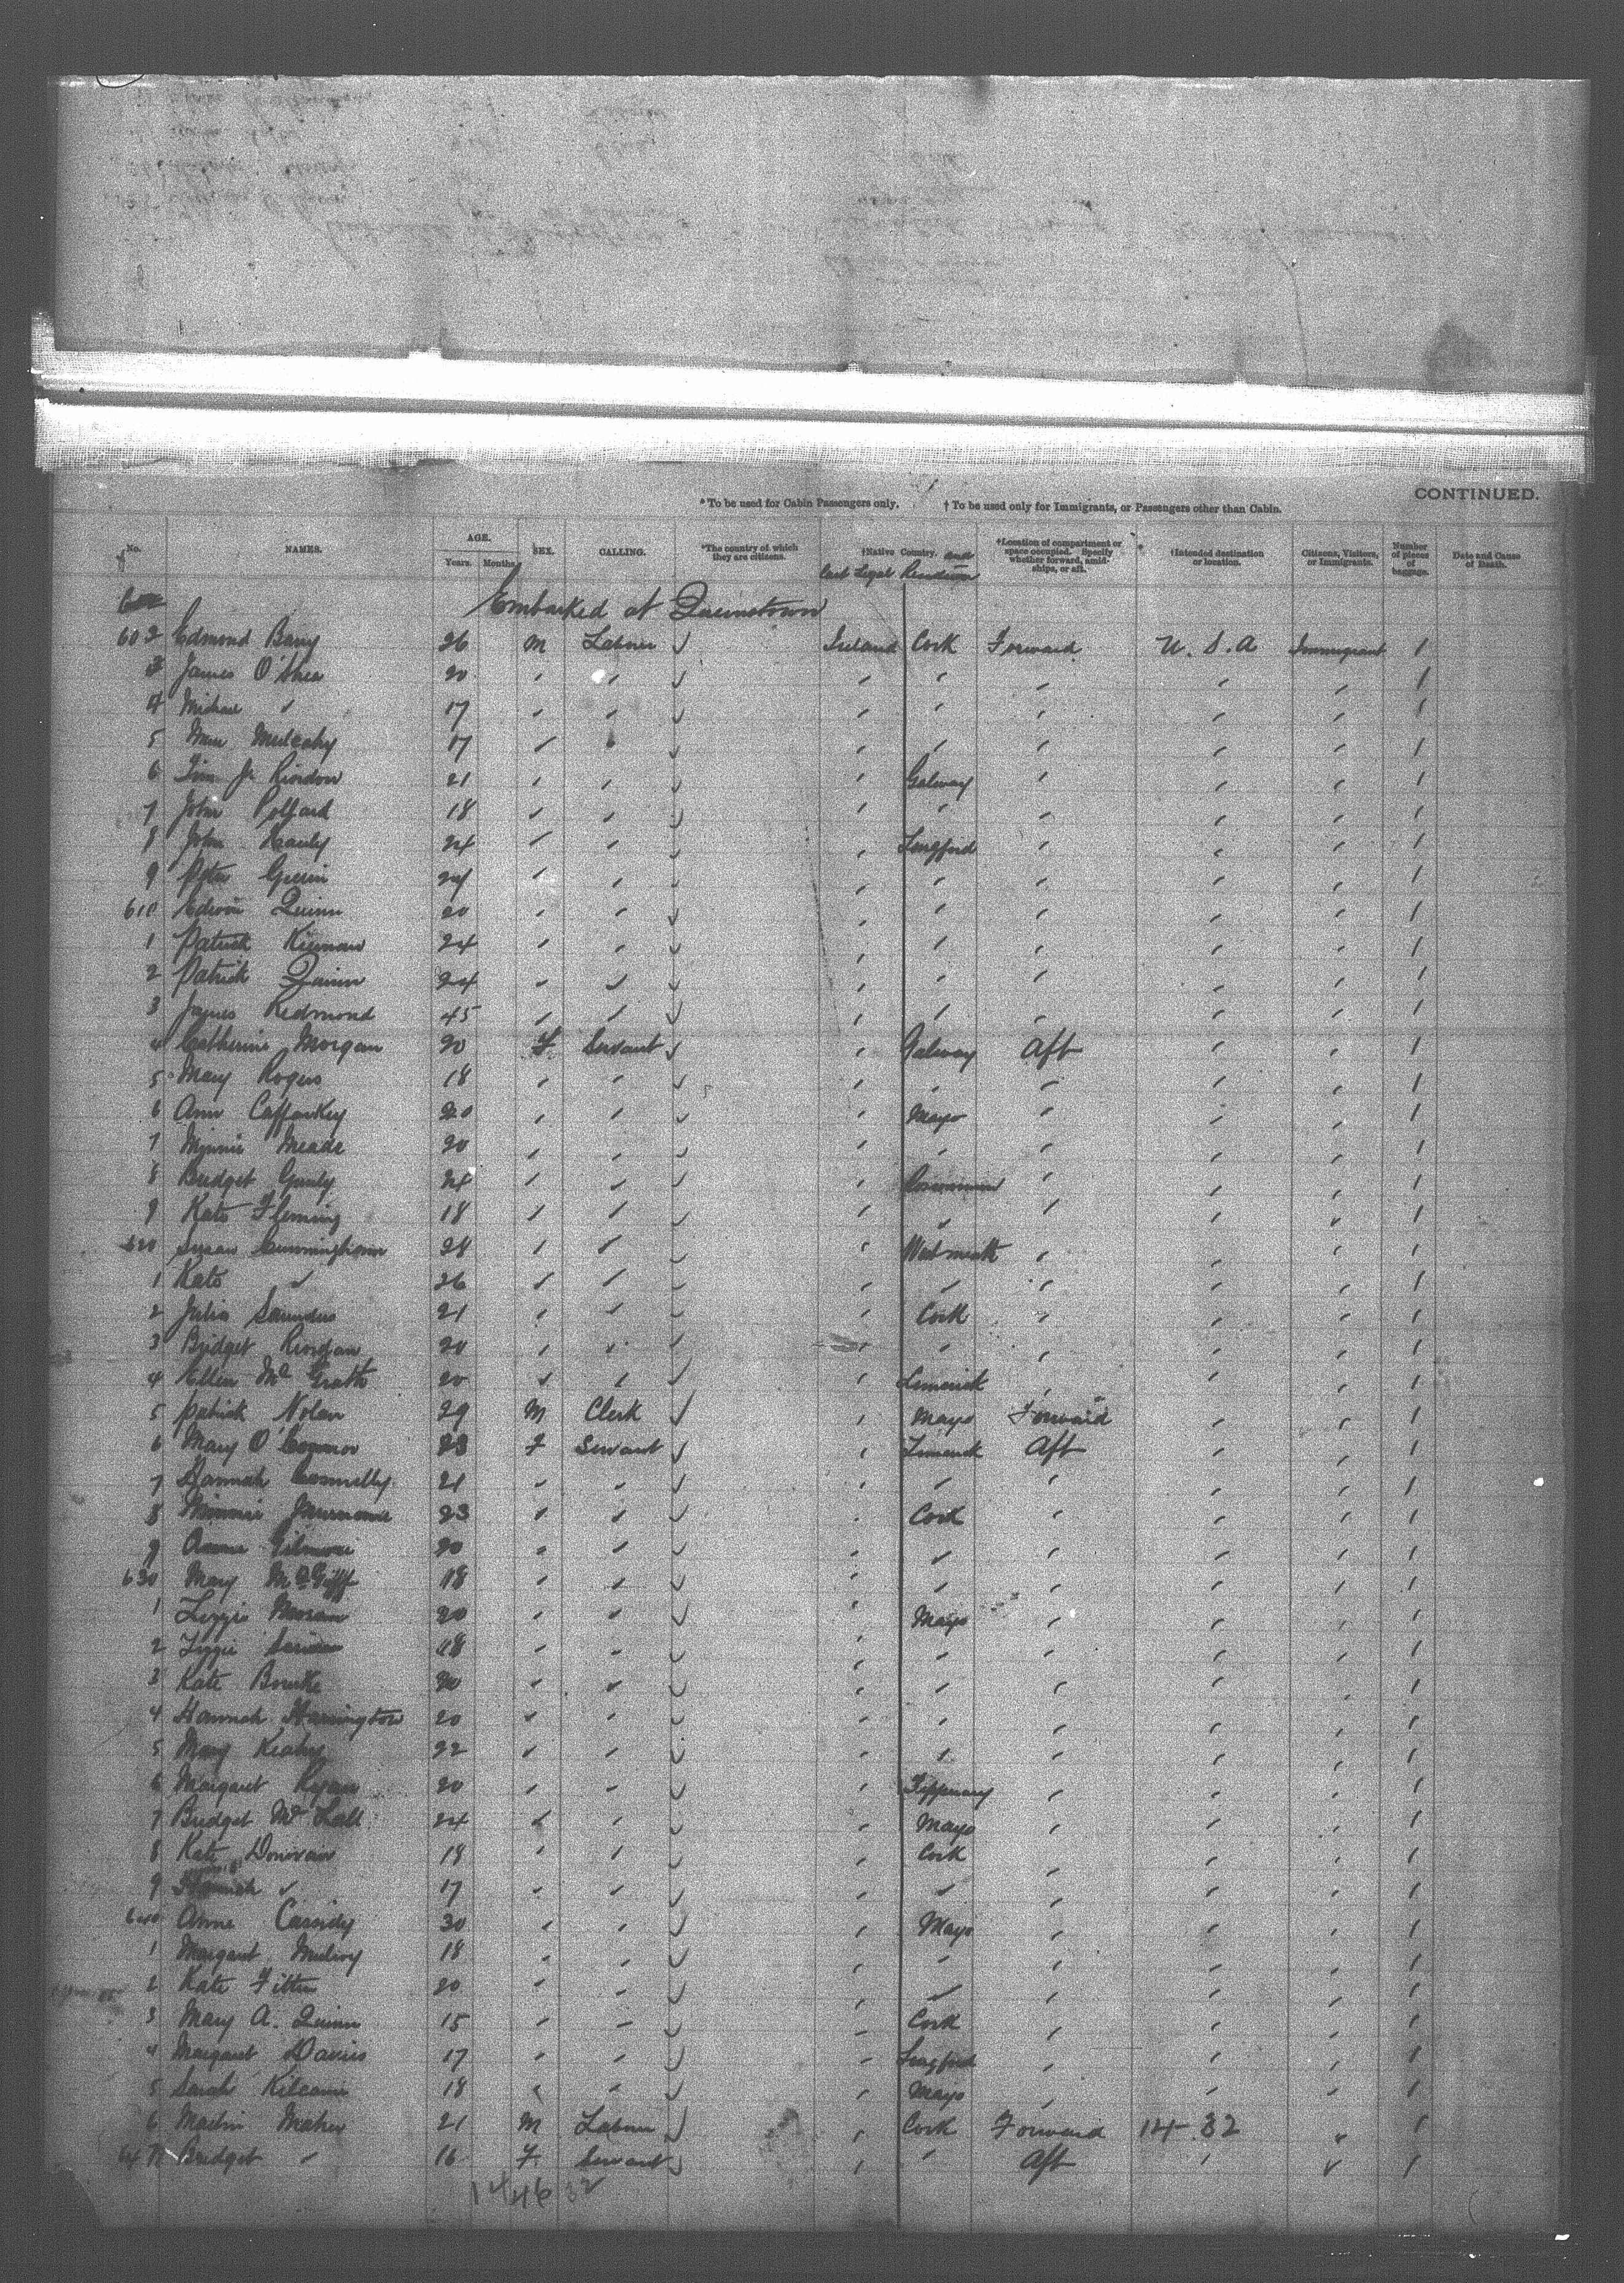 CONTINUED.
* To be used for Cabin Passengers only. † To be used only for Immigrants, or Passengers other than Cabin.
No. NAMES. AGE. Years. Months. SEX. CALLING. *The country of which they are citizens. †Native Country. and last legal Residence †Location of compartment or space occupied. Specify whether forward, amidships, or aft. †Intended destination or location. Citizens, Visitors, or Immigrants. Number of pieces of baggage. Date and Cause of Death.
Embarked at Queenstown
602 Edmond Barry 26 M Labourer ✓ Ireland Cork Forward U.S.A Immigrant 1
3 James O'Shea 20 " " ✓ " " " " " 1
4 Michael " 17 " " ✓ " " " " " 1
5 Wm Mulcahy 17 " " ✓ " " " " " 1
6 Tim J. Riordon 21 " " ✓ " Galway " " " 1
7 John 18 " " ✓ " " " " " 1
8 John 24 " " ✓ " Longford " " " 1
9 Peter 24 " " ✓ " " " " " 1
610 Quinn 20 " " ✓ " " " " " 1
1 Patrick Kiernan 24 " " ✓ " " " " " 1
2 Patrick Quinn 24 " " ✓ " " " " " 1
3 James Redmond 45 " " ✓ " " " " " 1
4 Catherine Morgan 20 F Servant ✓ " Galway Aft " " 1
5 Mary Rogers 18 " " ✓ " " " " " 1
6 Ann Caffarkey 20 " " ✓ " Mayo " " " 1
7 Minnie Meade 20 " " ✓ " " " " " 1
8 Bridget 24 " " ✓ " Roscommon " " " 1
9 Kate Fleming 18 " " ✓ " " " " " 1
620 Susan Cunningham 28 " " ✓ " Westmeath " " " 1
1 Kate " 26 " " ✓ " " " " " 1
2 Julia Saunders 21 " " ✓ " Cork " " " 1
3 Bridget Riordan 20 " " ✓ " " " " " 1
4 Ellen McGrath 20 " " ✓ " Limerick " " " 1
5 Patrick Nolan 29 M Clerk ✓ " Mayo Forward " " 1
6 Mary O'Connor 23 F Servant ✓ " Limerick Aft " " 1
7 Hannah Connelly 21 " " ✓ " " " " " 1
8 Minnie Murnane 23 " " ✓ " Cork " " " 1
9 Annie Gilmore 20 " " ✓ " " " " " 1
630 Mary 18 " " ✓ " " " " " 1
1 Lizzie Moran 20 " " ✓ " Mayo " " " 1
2 Lizzie 18 " " ✓ " " " " " 1
3 Kate Bourke 20 " " ✓ " " " " " 1
4 Hannah Harrington 20 " " ✓ " " " " " 1
5 Mary 22 " " ✓ " " " " " 1
6 Margaret Ryan 20 " " ✓ " Tipperary " " " 1
7 Bridget 24 " " ✓ " Mayo " " " 1
8 Kate Donovan 18 " " ✓ " Cork " " " 1
9 Hannah " 17 " " ✓ " " " " " 1
640 Anne Cassidy 30 " " ✓ " Mayo " " " 1
1 Margaret Mulroy 18 " " ✓ " " " " " 1
2 Kate 20 " " ✓ " " " " " 1
3 Mary A. Quinn 15 " " ✓ " Cork " " " 1
4 Margaret Davis 17 " " ✓ " Longford " " " 1
5 Sarah 18 " " ✓ " Mayo " " " 1
6 Martin Maher 21 M Labourer ✓ " Cork Forward 14-32 " 1
647 Bridget " 16 F Servant ✓ " " Aft " " 1